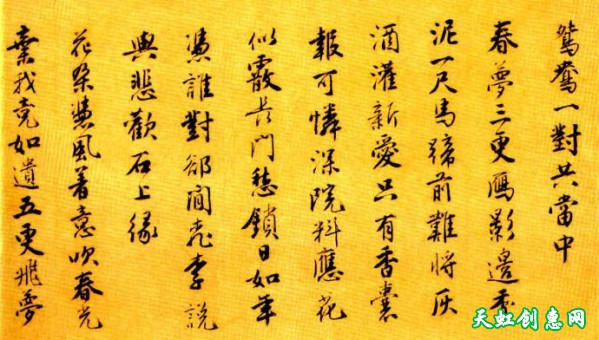 鴛鴦一對共當中
春夢三更雁影邊香
泥一尺馬蹄前難將灰
酒灌新愛只有香囊
報可憐深院料應花
似霰長門愁鎖日如年
憑誰對卻閒桃李説
與悲歡石上緣
花朵憑風著意吹春光
棄我竟如遺五更飛夢
天虹创惠网